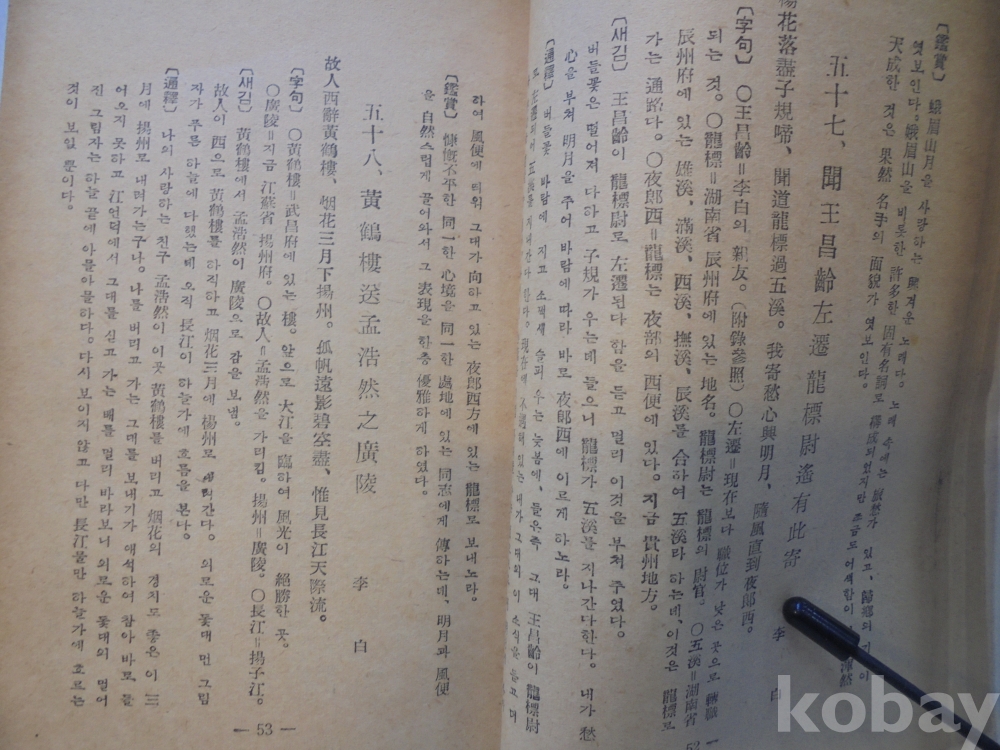 〔鑑賞〕 峨眉山月을 사랑하는 노래다.
엿보인다。峨眉山을 비롯한 許多한 固有名詞로
天成한 것은 果然 名手의 面貌가 엿보인다。
五十七、聞王昌齡左遷龍標尉遙有此寄
李 白
楊花落盡子規啼、聞道龍標過五溪。我寄愁心與明月、隨風直到夜郎西。
〔字句〕 〇王昌齡＝李白의 親友。(附錄參照) 〇左遷＝現在보다 職位가 낮은 곳으로 轉職
되는 것。〇龍標＝湖南省 辰州府에 있는 地名。龍標尉는 龍標의 尉官。 〇五溪＝湖南省
辰州府에 있는 雄溪、滿溪、西溪、撫溪、辰溪를 合하여 五溪라 하는데、이것은 龍標로
가는 通路다。〇夜郎西＝龍標는 夜郎의 西便에 있다。지금 貴州地方。
〔새김〕 王昌齡이 龍標尉로 左遷된다 함을 듣고 멀리 이것을 부쳐 주었다。
버들꽃은 떨어져 다하고 子規가 우는데 들으니 龍標가 五溪를 지나간다한다。 내가 愁
心을 부쳐 明月을 주어 바람에 따라 바로 夜郎西에 이르게 하노라。
〔通釋〕 버들꽃 바람에 지고 소쩍새 슬피 우는 늦봄에、들으니 그대 王昌齡이 龍標尉
로 左遷되어 五溪를 지나간다 한다。
하여 風便에 띄워 그대가 向하고 있는 夜郎西方에 있는 龍標로 보내노라。
〔鑑賞〕 慷慨不平한 同一한 心境을 同一한 處地에 있는 同志에게 傳하는데、明月과 風便
을 自然스럽게 끌어와서 그 表現을 함층 優雅하게 하였다。
五十八、黃鶴樓送孟浩然之廣陵
李 白
故人西辭黃鶴樓、烟花三月下揚州。孤帆遠影碧空盡、惟見長江天際流。
〔字句〕 〇黃鶴樓＝武昌府에 있는 樓。앞으로 大江을 臨하여 風光이 絕勝한 곳。
〇廣陵＝지금 江蘇省 揚州府。〇故人＝孟浩然을 가리킴。揚州＝廣陵。〇長江＝揚子江。
〔새김〕 黃鶴樓에서 孟浩然이 廣陵으로 감을 보냄。
故人이 西으로 黃鶴樓를 하직하고 烟花三月에 楊州로 내려간다。외로운 돛대 먼 그림
자가 푸른 하늘에 다했는데 오직 長江이 하늘가에 흐름을 본다。
〔通釋〕 나의 사랑하는 친구 孟浩然이 이곳 黃鶴樓를 버리고 烟花의 경치도 좋은 이 三
月에 揚州로 내려가는구나。나를 버리고 가는 그대를 보내기가 애석하여 참아 바로 들
어오지 못하고 江언덕에서 그대를 싣고 가는 배를 멀리 바라보니 외로운 돛대의 멀어
진 그림자는 하늘 끝에 아물아물하다。다시 보이지 않고 다만 長江물만 하늘가에 흐르는
것이 보일 뿐이다。
— 53 —
52
kobay